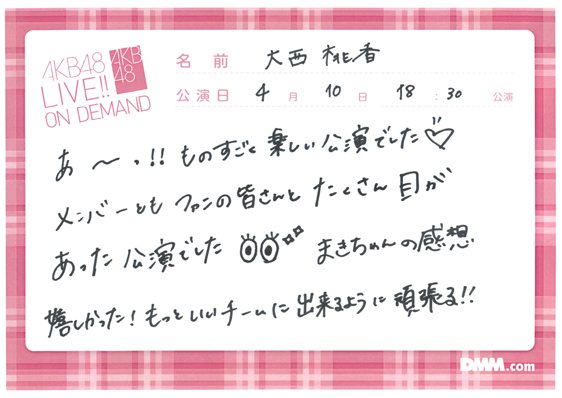 AKB48
LIVE!!
ON DEMAND
AKB
48
名前 大西 桃香
公演日 4月10日 18:30 公演
あ〜っ!! ものすごく楽しい公演でした♡
メンバーとも ファンの皆さんと たくさん目が
あった公演でした まきちゃんの感想
嬉しかった! もっといいチームに出来るように頑張る!!
DMM.com